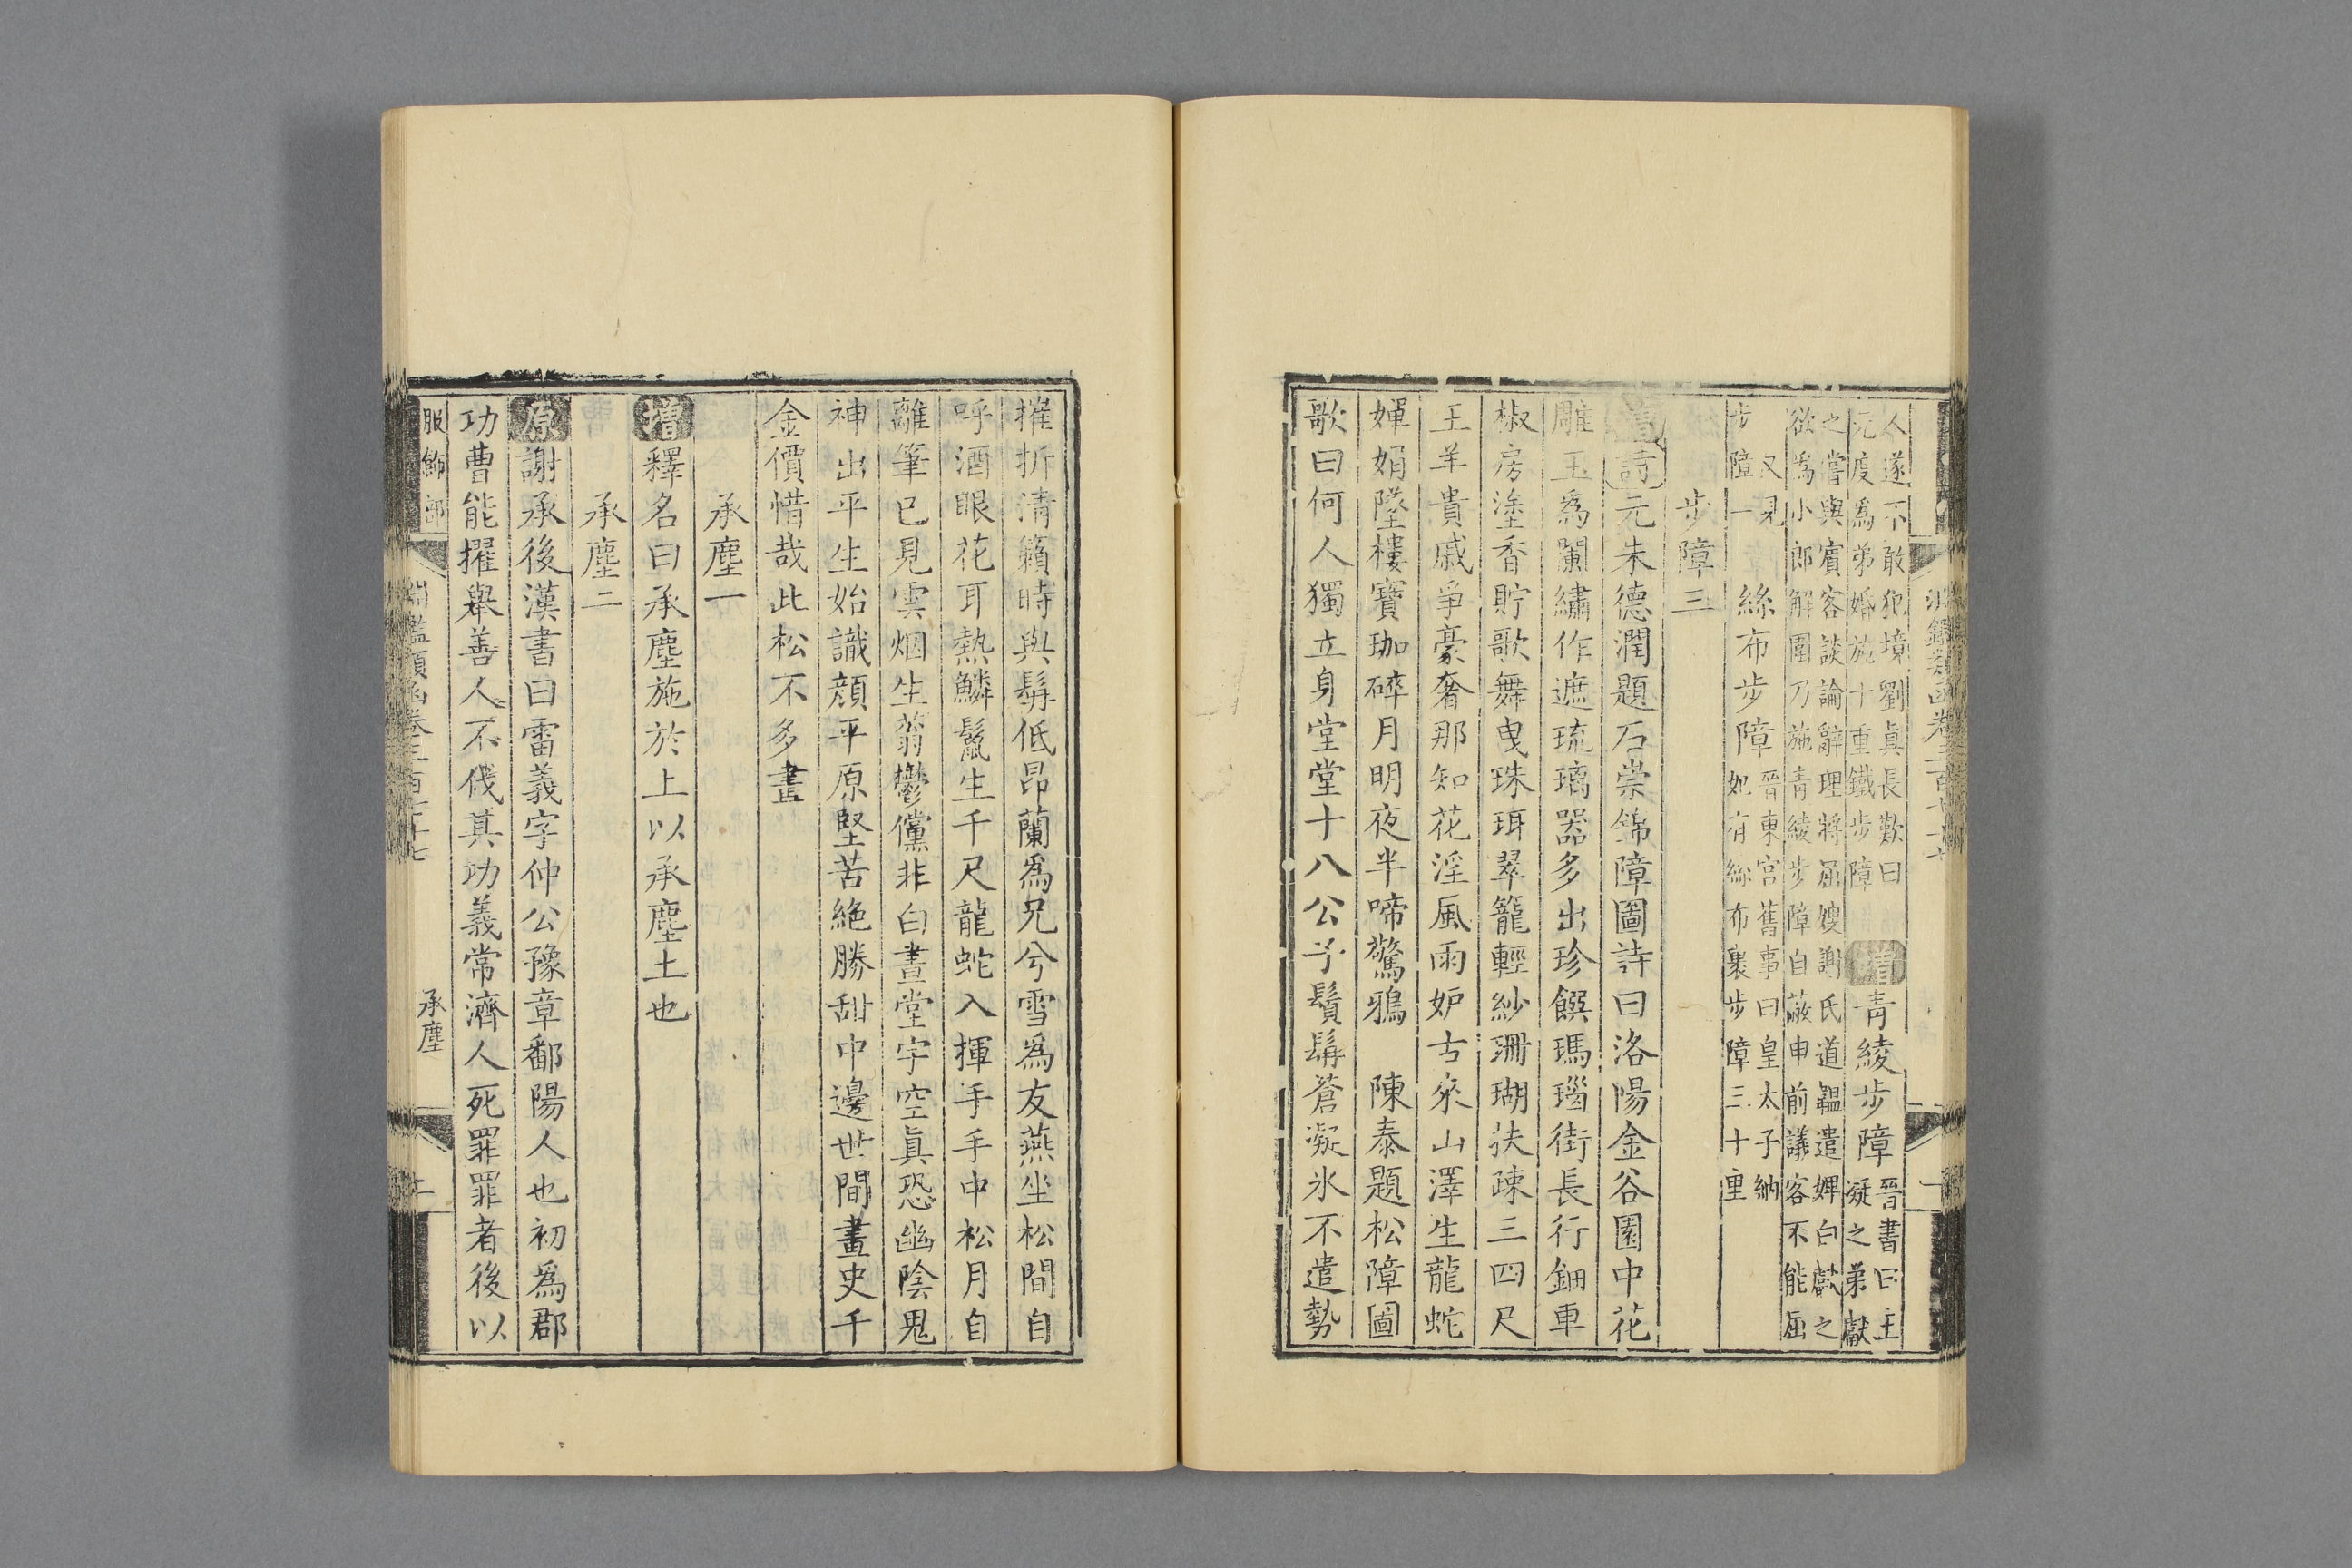 人遂不敢犯境劉真長歎曰
元度為弟婚施十重鐵步障
增青綾步障
晉書曰王
凝之弟獻
之嘗與賓客談論辭理將屈嫂謝氏道韞遣婢白獻之
欲爲小郎解圍乃施青綾步障自蔽申前議客不能屈
又見
步障一
絲布步障
晉東宮舊事曰皇太子納
妃有絲布裹步障三十里
步障三
增詩元朱德潤題石崇錦障圖詩曰洛陽金谷園中花
雕玉爲闌繡作遮琉璃器多出珍饌瑪瑙街長行鈿車
椒房塗香貯歌舞曳珠珥翠籠輕紗珊瑚扶疎三四尺
王羊貴戚爭豪奢那知花淫風雨妒古來山澤生龍蛇
嬋娟墜樓寶珈碎月明夜半啼驚鴉 陳泰題松障圖
歌曰何人獨立身堂堂十八公子鬚髯蒼凝氷不遣勢
摧折清籟時與髯低昂蘭爲兄兮雪爲友燕坐松間自
呼酒眼花耳熱鱗鬣生千尺龍蛇入揮手手中松月自
離筆已見雲烟生蓊鬱儻非白晝堂宇空真恐幽陰鬼
神出平生始識顔平原堅苦絶勝甜中邊世間畫史千
金價惜哉此松不多畫
承塵一
增釋名曰承塵施於上以承塵土也
承塵二
原謝承後漢書曰雷義字仲公豫章鄱陽人也初爲郡
功曹能擢舉善人不伐其功義常濟人死罪罪者後以
服飾部
淵鑑類函卷三百七十七
承塵